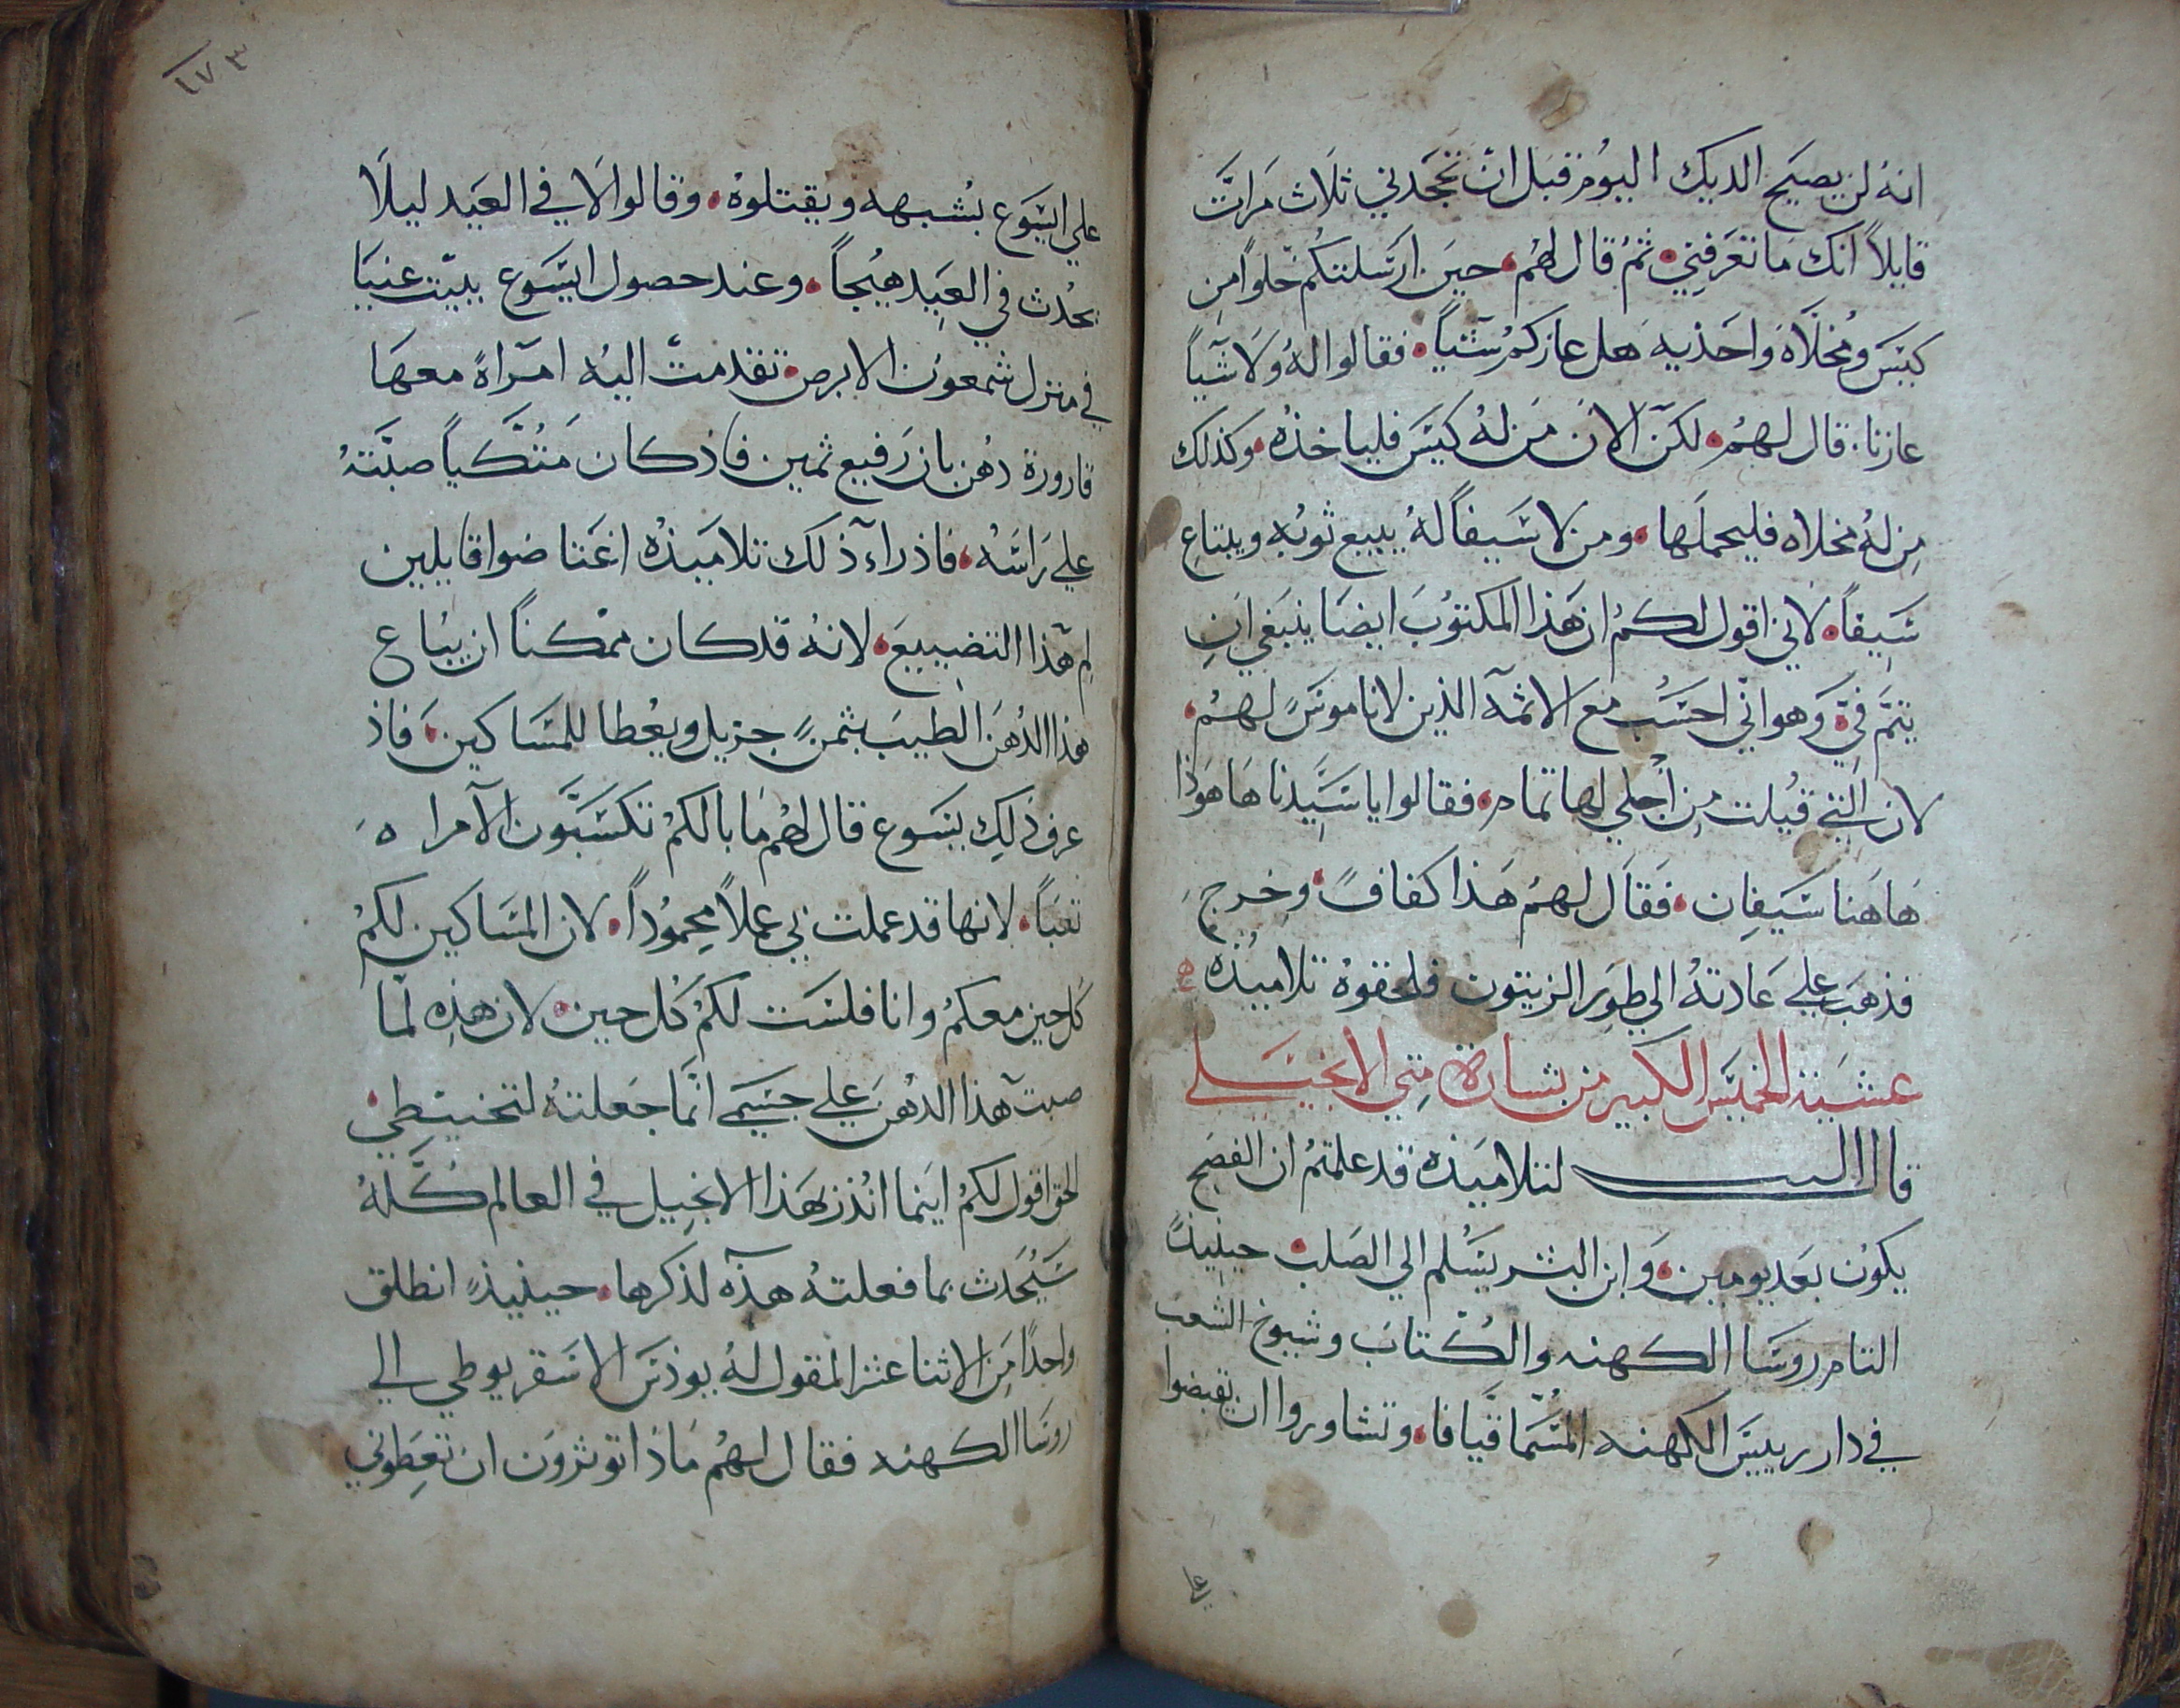 انه لن يصيح الديك اليوم قبل ان تجحدني ثلاث مرات
قايلاً انك ما تعرفني ثم قال لهم حين ارسلتكم خلوًا من
كيس ومخلاه واحذيه هل عازكم شياً فقالوا له ولا شياً
عازنا قال لهم لكن الان من له كيس فلياخذه وكذلك
من له مخلاه فليحملها ومن لا سيفاً له يبيع ثوبه ويبتاع
سيفاً لاني اقول لكم ان هذا المكتوب ايضا ينبغي ان
يتم في وهو اني احسب مع الاثمه الذين لا ناموس لهم
لان التي قيلت من اجلي لها تمام فقالوا يا سيدنا ها هوذا
هاهنا سيفان فقال لهم هذا كفاف وخرج
فذهب علي عادته الي طور الزيتون فلحقوه تلاميذه
عشية الخميس الكبير من بشارة متي الانجيلي
قال الرب لتلاميذه قد علمتم ان الفصح
يكون بعد يومين وابن البشر يسلم الي الصلب حينيذ
التام روسا الكهنه والكتاب وشيوخ الشعب
في دار رييس الكهنه المسما قيافا وتشاوروا ان يقبضوا
علي
١٧٣
علي ايسوع بشبهه ويقتلوه وقالوا لا في العيد ليلا
يحدث في العيد هيجاً وعند حصول ايسوع ببيت عنيا
في منزل شمعون الابرص تقدمت اليه امراة معها
قارورة دهن بان رفيع ثمين فاذ كان متكياً صبته
علي راسه فاذ راء ذلك تلاميذه اغتاضوا قايلين
لم هذا التضييع لانه قد كان ممكناً ان يباع
هذا الدهن الطيب بثمن جزيل ويعطا للمساكين فاذ
عرف ذلك يسوع قال لهم ما بالكم تكسبون الامراه
تعباً لانها قد عملت بي عملاً محموداً لان المساكين لكم
كل حين معكم وانا فلست لكم كل حين لان هذه لما
صبت هذا الدهن علي جسمي انما جعلته لتحنيطي
الحق اقول لكم اينما انذر بهذا الانجيل في العالم كله
سيحدث بما فعلته هذه لذكرها حينيذ انطلق
واحدًا من الاثنا عشر المقول له يوذس الاسقريوطي الي
روسا الكهنه فقال لهم ماذا توثرون ان تعطوني